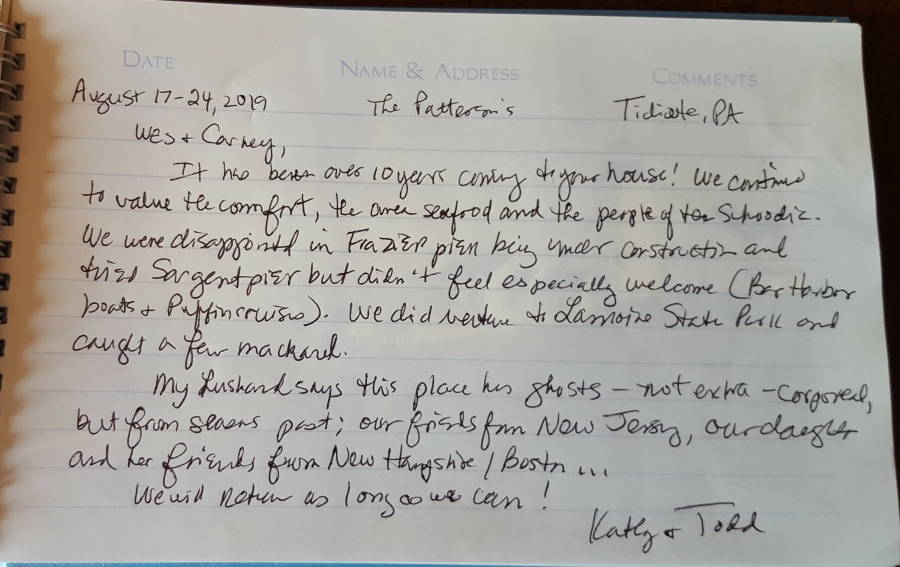 DATE NAME & ADDRESS COMMENTS
August 17-24, 2019 The Patterson's Tidioute, PA
Wes + Carney,
It has been over 10 years coming to your house! We continue
to value the comfort, the area seafood and the people of the Schoodic.
We were disappointed in Frazier pier being under construction and
tried Sargent pier but didn't feel especially welcome (Bar Harbor
boats + Puffin cruises). We did venture to Lamoine State Park and
caught a few mackarel.
My husband says this place has ghosts - not extra-corporeal,
but from seasons past; our friends from New Jersey, our daughter
and her friends from New Hampshire / Boston ...
We will return as long as we can!
Kathy + Todd